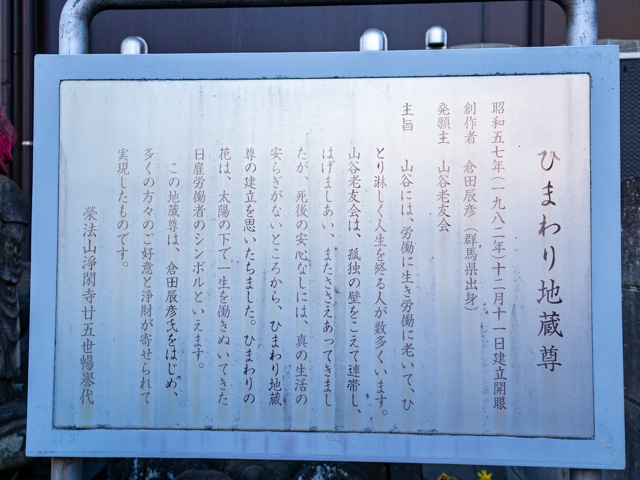 ひまわり地蔵尊
昭和五七年(一九八二年)十二月十一日建立開眼
創作者　倉田辰彦（群馬県出身）
発願主　山谷老友会
主旨　山谷には、労働に生き労働に老いて、ひ
とり淋しく人生を終る人が数多くいます。
山谷老友会は、孤独の壁をこえて連帯し、
はげましあい、またささえあってきまし
たが、死後の安心なしには、真の生活の
安らぎがないところから、ひまわり地蔵
尊の建立を思いたちました。ひまわりの
花は、太陽の下で一生を働きぬいてきた
日雇労働者のシンボルといえます。
この地蔵尊は、倉田辰彦氏をはじめ、
多くの方々のご好意と浄財が寄せられて
実現したものです。
榮法山淨閑寺廿五世暢譽代